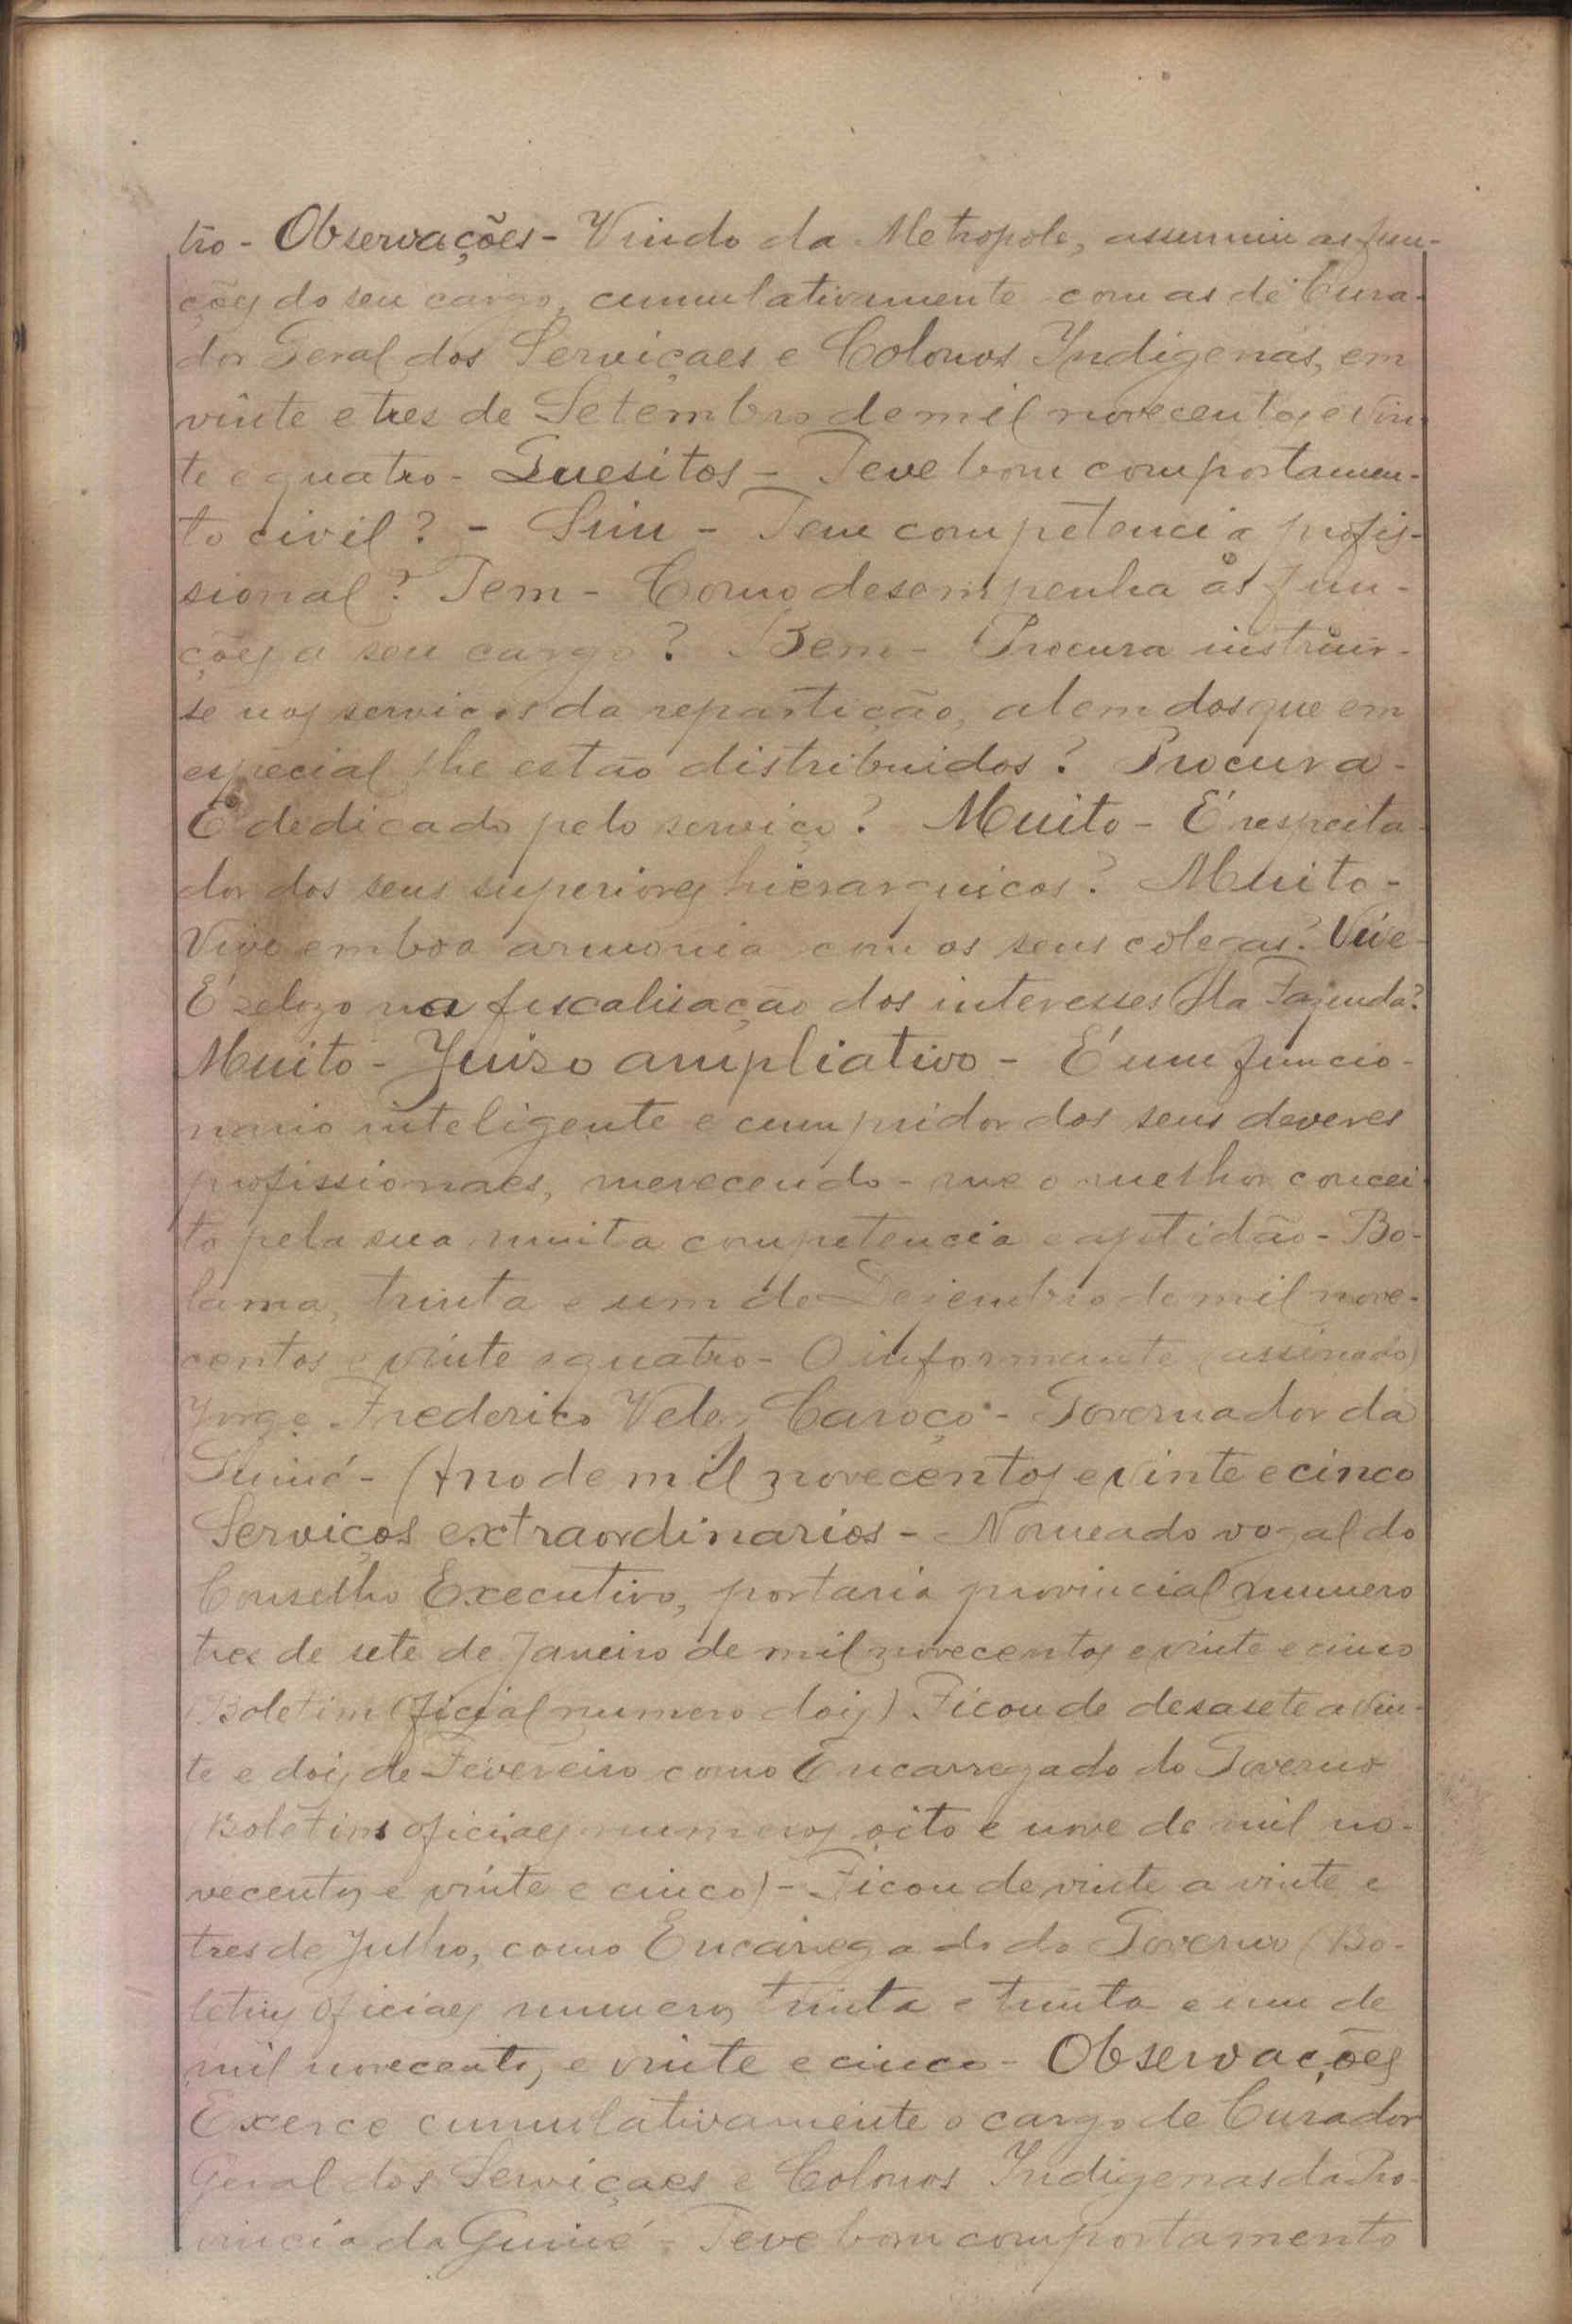 tro - Observações - Vindo da Metropole, assumiu as fun-
ções do seu cargo, cumulativamente com as de Cura-
dor Geral dos Serviçaes e Colonos Indigenas, em
vinte e tres de Setembro de mil novecentos e vin-
te e quatro - Quesitos - Teve bom comportamen-
to civil? - Sim - Tem competencia profis-
sional? Tem - Como desempenha as fun-
ções a seu cargo? Bem - Procura instruir-
se nos serviços da repartição, alem dos que em
especial lhe estão distribuidos? Procura -
É dedicado pelo serviço? Muito - É respeita-
dor dos seus superiores hierarquicos? Muito -
Vive em boa armonia com os seus colegas? Vive -
É zelozo na fiscalisação dos interesses da Fazenda?
Muito - Juiso ampliativo - É um funcio-
nario inteligente e cumpridor dos seus deveres
profissionaes, merecendo-me o melhor concei-
to pela sua muita competencia e aptidão - Bo-
lama, trinta e um de Dezembro de mil nove-
centos e vinte e quatro - O informante (assinado)
Jorge Frederico Velez Caroço - Governador da
Guiné - (Ano de mil novecentos e vinte e cinco
Serviços extraordinarios - Nomeado vogal do
Conselho Executivo, portaria provincial numero
tres de sete de Janeiro de mil novecentos e vinte e cinco
(Boletim Oficial numero dois) Ficou de desasete a vin-
te e dois de Fevereiro como Encarregado do Governo
(Boletins oficiaes numeros oito e nove de mil no-
vecentos e vinte e cinco) - Ficou de vinte a vinte e
tres de Julho, como Encarregado do Governo (Bo-
letins oficiaes numeros trinta e trinta e um de
mil novecentos e vinte e cinco - Observações
Exerce cumulativamente o cargo de Curador
Geral dos Serviçaes e Colonos Indigenas da Pro-
vincia da Guiné - Teve bom comportamento